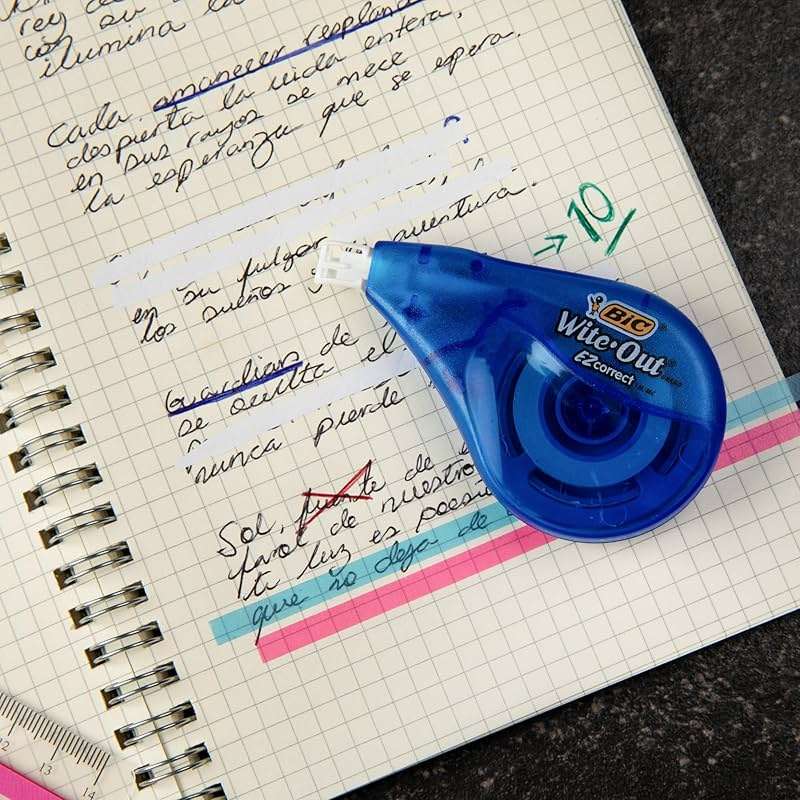 rey
ilumina la
Cada amanecer resplan
despierta la vida entera,
en sus rayos se mece
la esperanza que se espera.
en su fulgor
los sueños y aventura.
→ 10/
BIC
Wite·Out
EZcorrect
Guardian de
se oculta el
nunca pierde
Sol, fuente de
farol de nuestro
tu luz es poesía
que no deja de
12
13
14